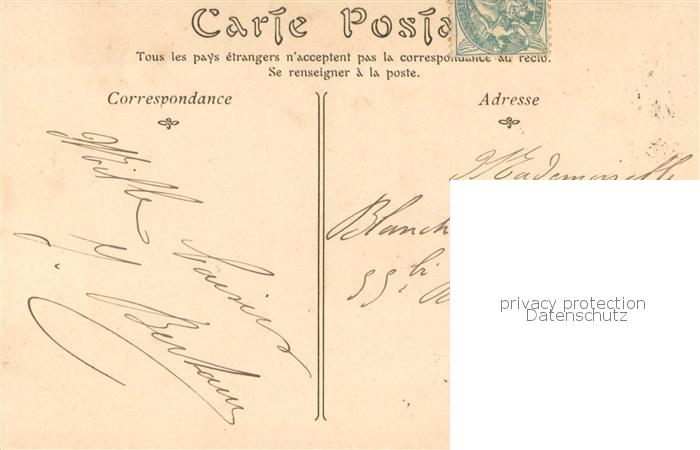 Carte Posta
Tous les pays étrangers n'acceptent pas la correspondance au recto.
Se renseigner à la poste.
Correspondance
Adresse
Mademoiselle
Blanch
55 bis
privacy protection
Datenschutz